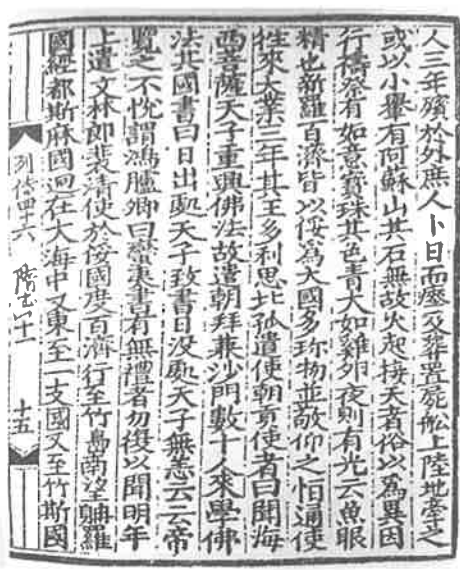 人三年殯於外庶人卜日而瘞及葬置屍舩上陸地牽之
或以小轝有阿蘇山其石無故火起接天者俗以為異因
行禱祭有如意寶珠其色青大如雞卵夜則有光云魚眼
精也新羅百濟皆以俀為大國多珎物並敬仰之恒通使
往來大業三年其王多利思比孤遣使朝貢使者曰聞海
西菩薩天子重興佛法故遣朝拜兼沙門數十人來學佛
法其國書曰日出處天子致書日没處天子無恙云云帝
覽之不悅謂鴻臚卿曰蠻夷書有無禮者勿復以聞明年
上遣文林郎裴清使於俀國度百濟行至竹島南望𨈭羅
國經都斯麻國迥在大海中又東至一支國又至竹斯國
列傳四十六 隋書八十一 十五